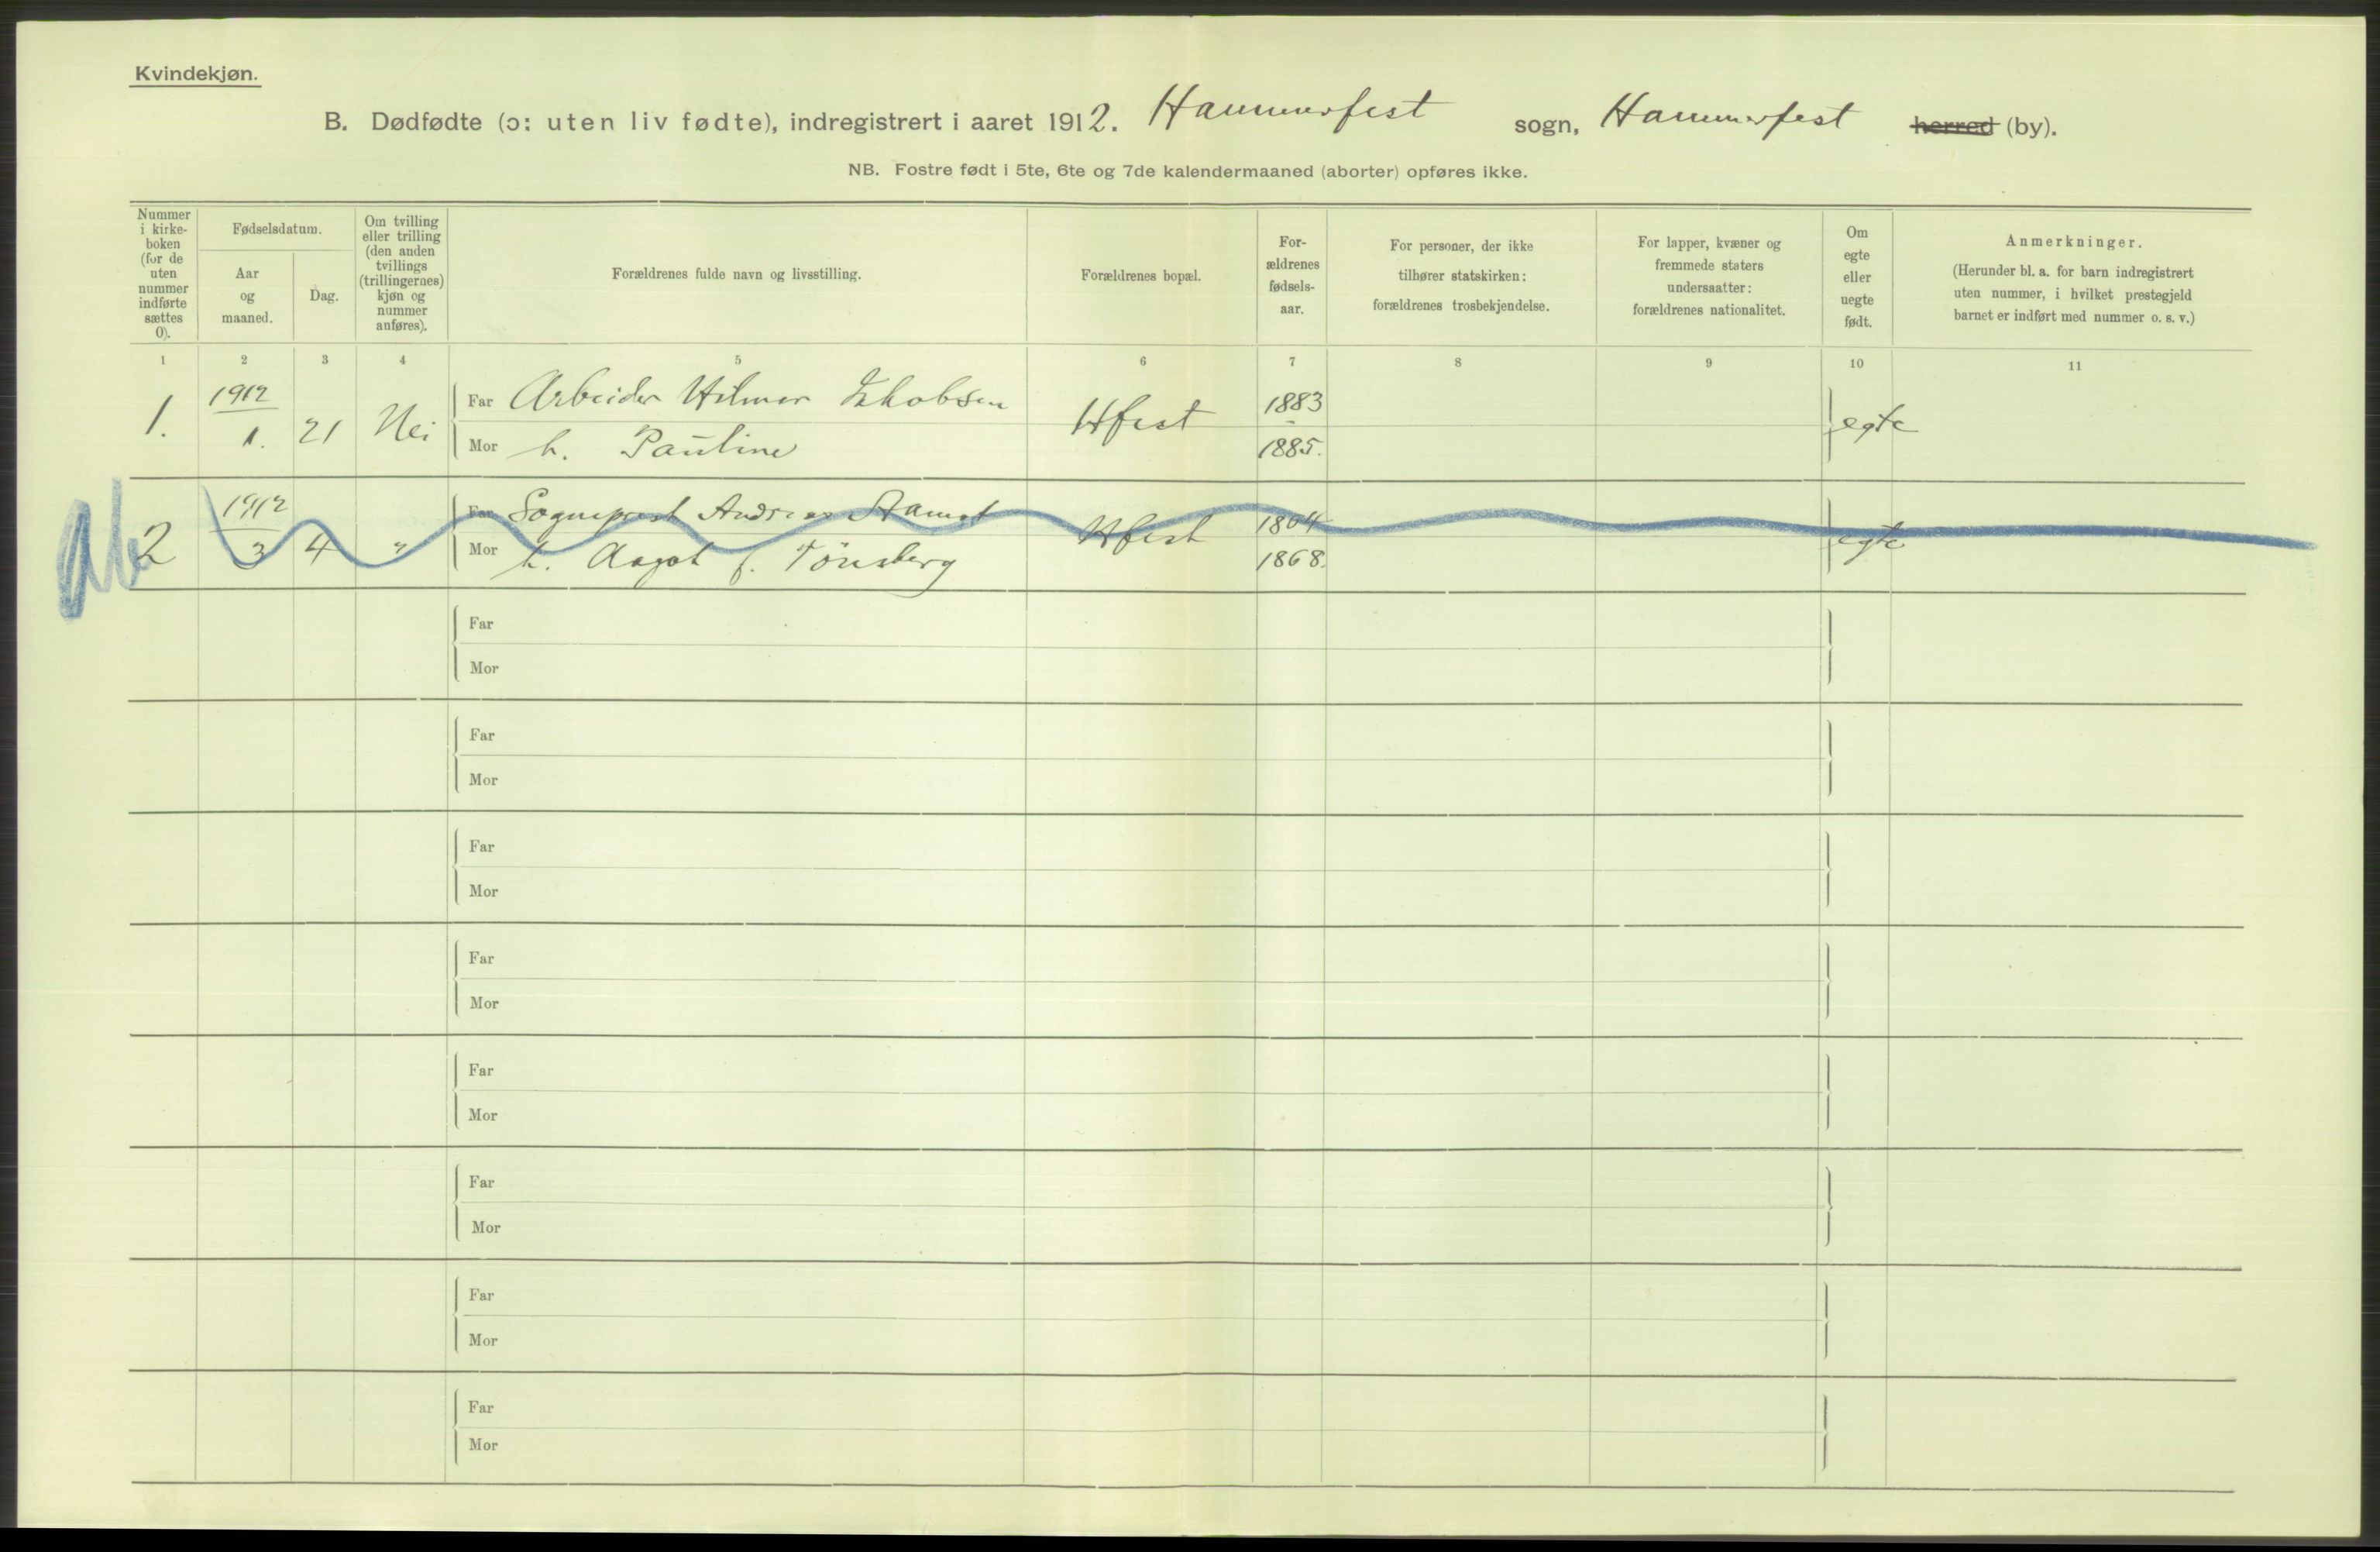 Kvindekjøn.
B. Dødfødte (ɔ: uten liv fødte), indregistrert i aaret 1912. Hammerfest sogn, Hammerfest herred (by).
NB. Fostre født i 5te, 6te og 7de kalendermaaned (aborter) opføres ikke.
Nummer
i kirke-
boken
(for de
uten
nummer
indførte
sættes
0).
Fødselsdatum.
Aar
og
maaned.
Dag.
Om tvilling
eller trilling
(den anden
tvillings
(trillingernes)
kjøn og
nummer
anføres).
Forældrenes fulde navn og livsstilling.
Forældrenes bopæl.
For-
ældrenes
fødsels-
aar.
For personer, der ikke
tilhører statskirken:
forældrenes trosbekjendelse.
For lapper, kvæner og
fremmede staters
undersaatter:
forældrenes nationalitet.
Om
egte
eller
uegte
født.
Anmerkninger.
(Herunder bl. a. for barn indregistrert
uten nummer, i hvilket prestegjeld
barnet er indført med nummer o. s. v.)
1 2 3 4 5 6 7 8 9 10 11
1. 1912 1. 21 Nei
Far Arbeider Hilmar Jakobsen Hfest 1883 egte
Mor h. Pauline 1885.
2 1912 3 4 "
Far Sogneprest Andreas Hfest 1864 egte
Mor h. Aagot f. Tønsberg 1868.
Far
Mor
Far
Mor
Far
Mor
Far
Mor
Far
Mor
Far
Mor
Far
Mor
Far
Mor